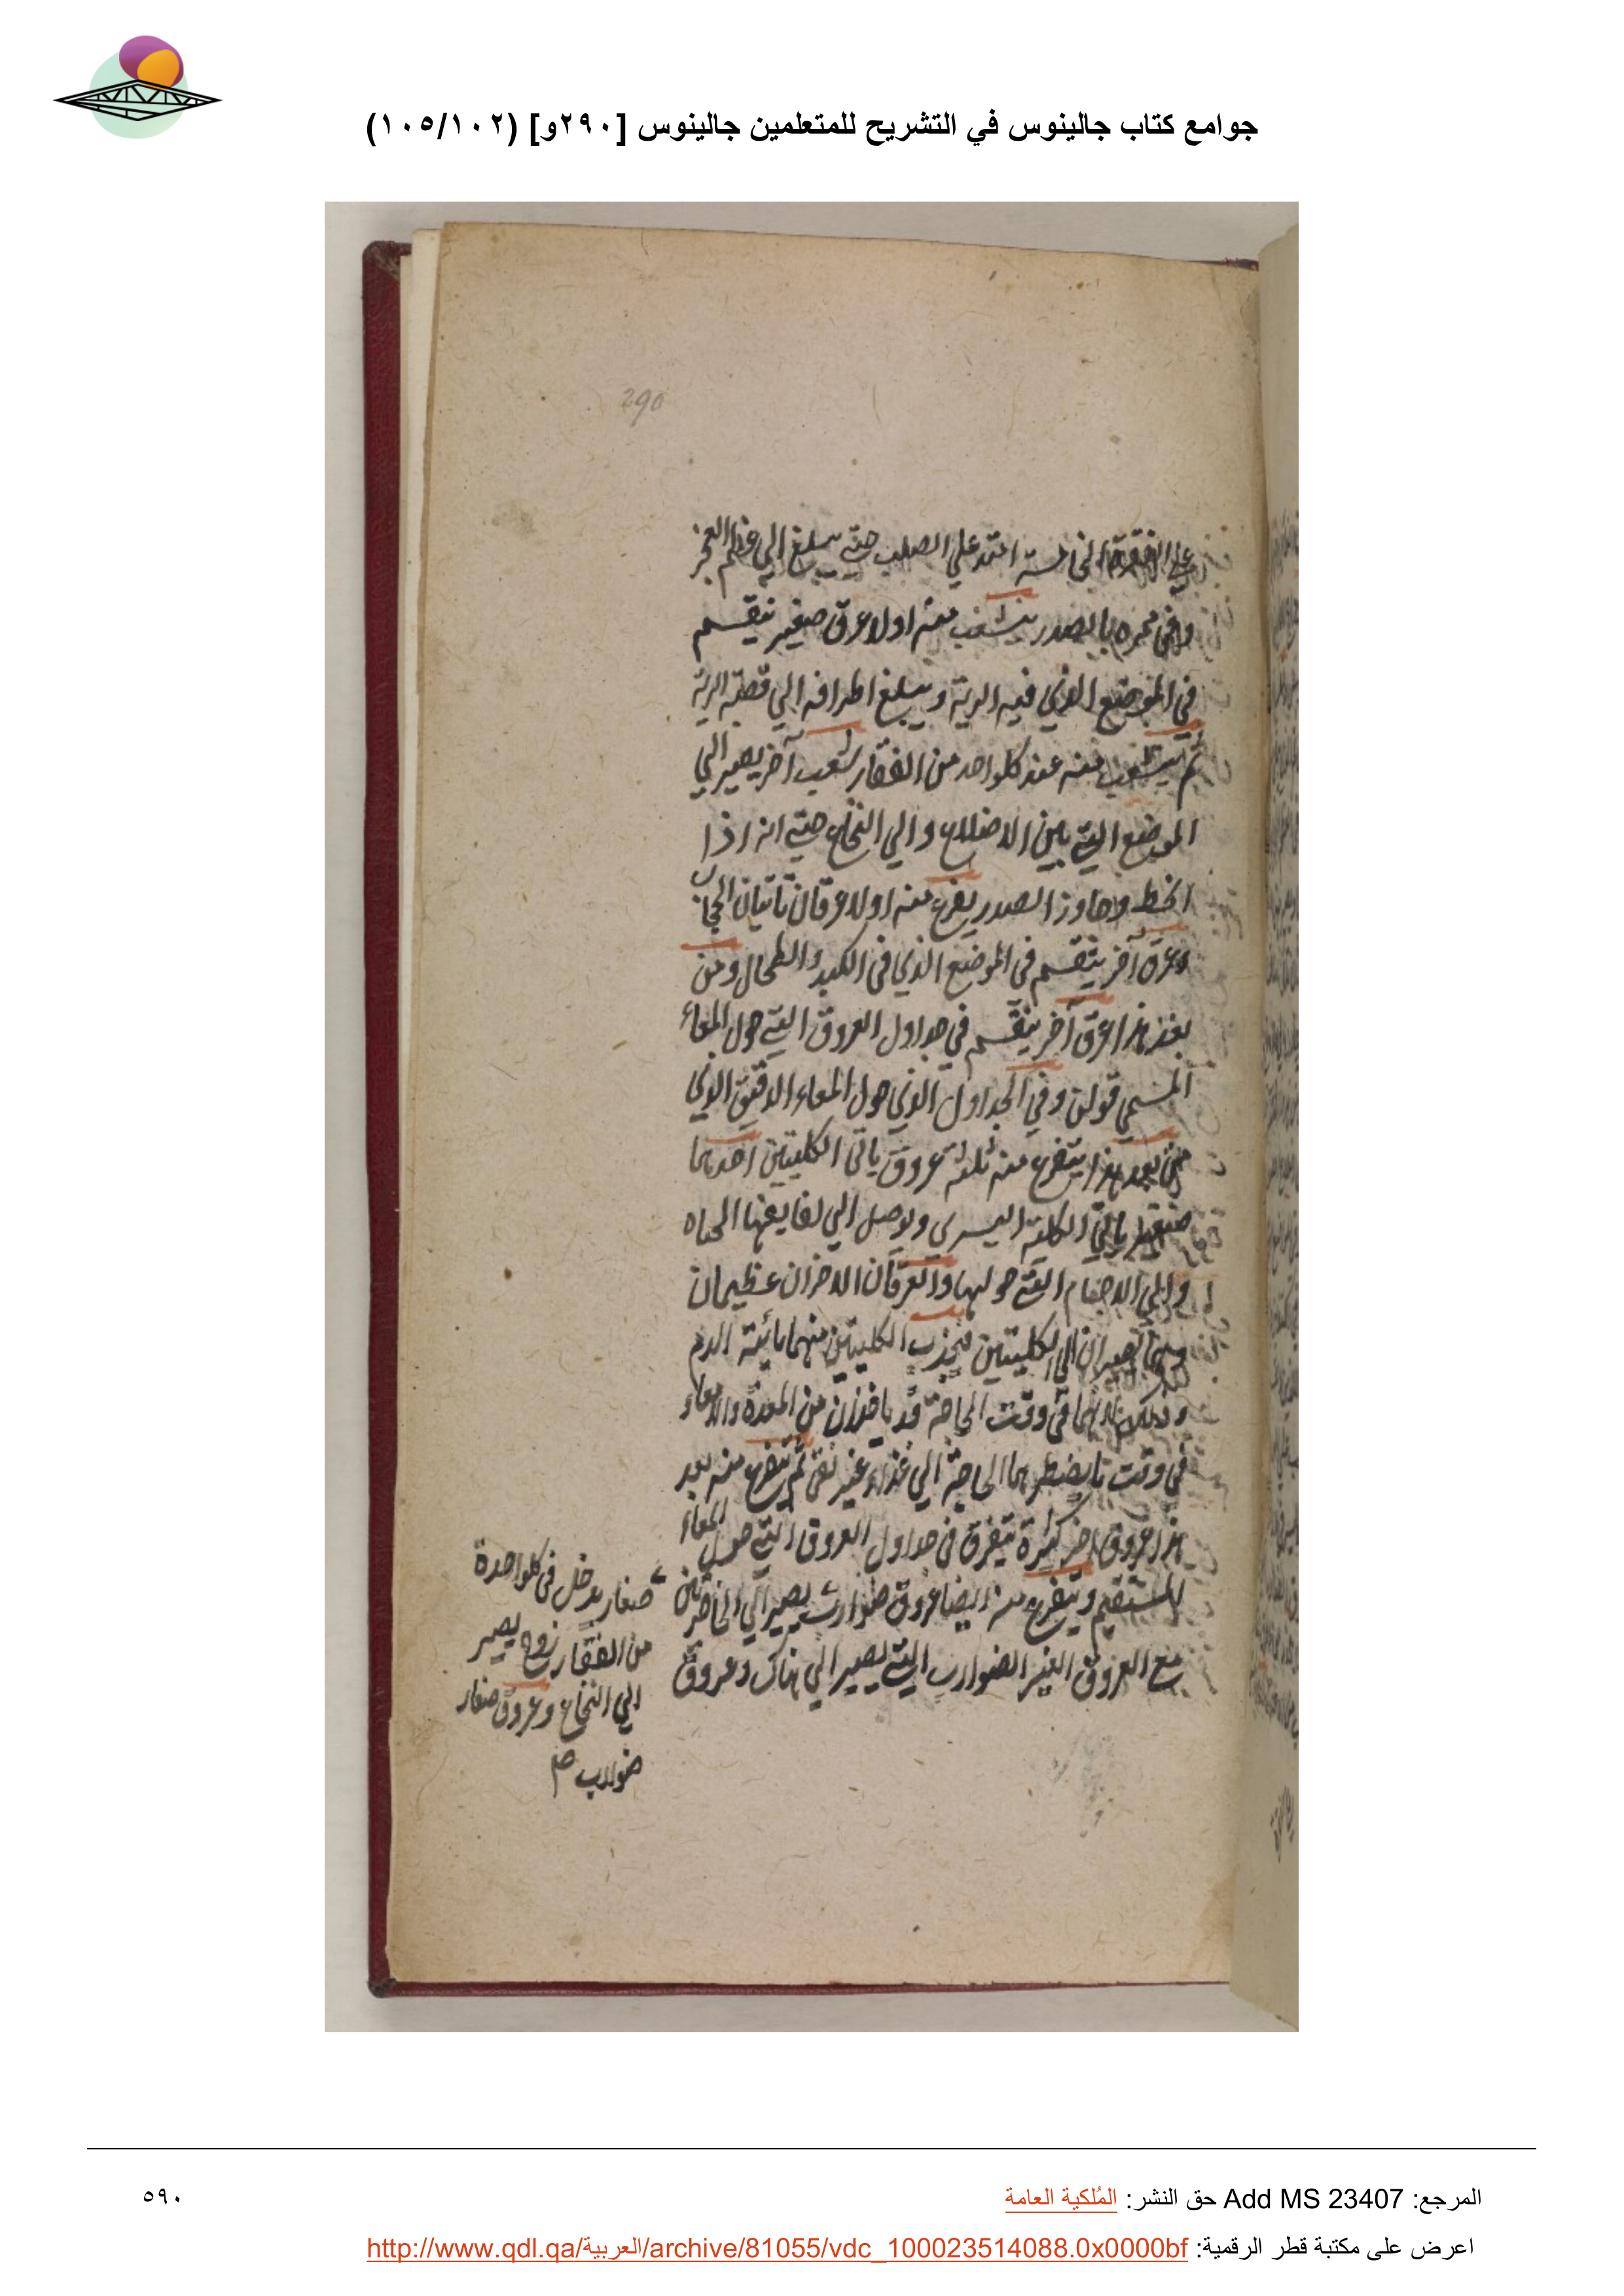 جوامع كتاب جالينوس في التشريح للمتعلمين جالينوس [٢٩٠و] (١٠٥/١٠٢)
290
على الفقرة الخامسة امتد علي الصلب حتي يبلغ الي عظم العجز
وفي ممره بالصدر ينشعب منه اولا عرق صغير ينقسم
في الموضع الذي فيه الرية ويبلغ اطرافه الي قصبة الرية
ثم يتشعب منه عند كلواحد من الفقار شعب آخر يصير الي
الموضع التي بين الاضلاع والي النخاع حتي انه اذا
انحط وجاوز الصدر يفرع منه اولا عرقان تاتيان الحجاب
وعرق آخر ينقسم في الموضع الذي في الكبد والطحال ومن
بعد هذا عرق آخر ينقسم في جداول العروق التي حول المعاء
المسمي قولن وفي الجداول الذي حول المعاء الدقيق الذي
من بعد هذا يتفرع منه ثلثة عروق ياتي الكليتين احدهما
ياتي الكلية اليسري ويوصل الي لفايفها
والي الاجسام التي حولها والعرقان الاخران عظيمان
وهما يصيران الي الكليتين فيجذب الكليتين منهما مائية الدم
وذلك انهما في وقت الحاجة قد ياخذان من المعدة والامعاء
في وقت تا يضطرهما الحاجة الي غذاء غير نقي ثم يتفرع منه بعد
هذا عروق اخر كثيرة يتفرق في جداول العروق التي حول المعاء
المستقيم ويتفرع منه ايضا عروق ضوارب يصير الي الخاصرتين
مع العروق الغير الضوارب التي يصير الي هناك وعروق
صغار يدخل في كلواحدة
من الفقار زوج يصير
الي النخاع وعروق صغار
ضوارب صح
المرجع: Add MS 23407 حق النشر: المُلكية العامة
٥٩٠
اعرض على مكتبة قطر الرقمية: http://www.qdl.qa/العربية/archive/81055/vdc_100023514088.0x0000bf